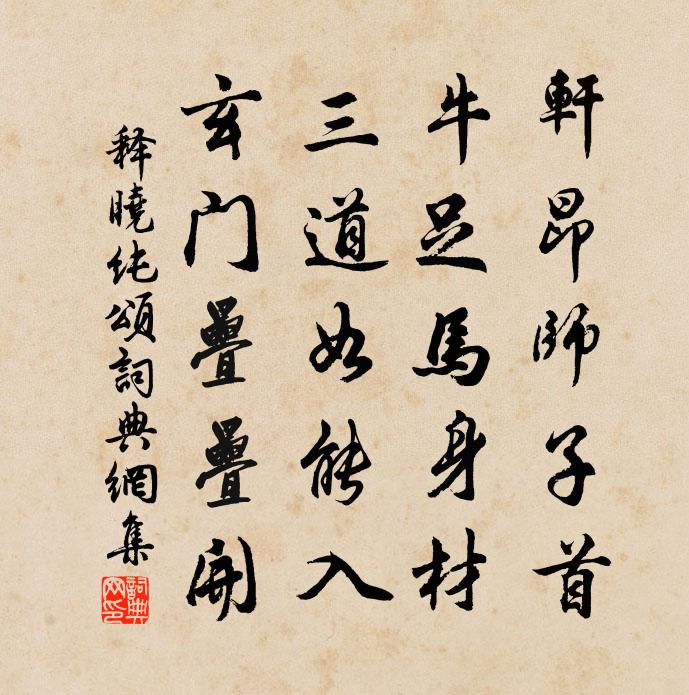 軒昂師子首
牛足馬身材
三道如能入
玄門疊疊開
释曉純頌詞典網集
詞典